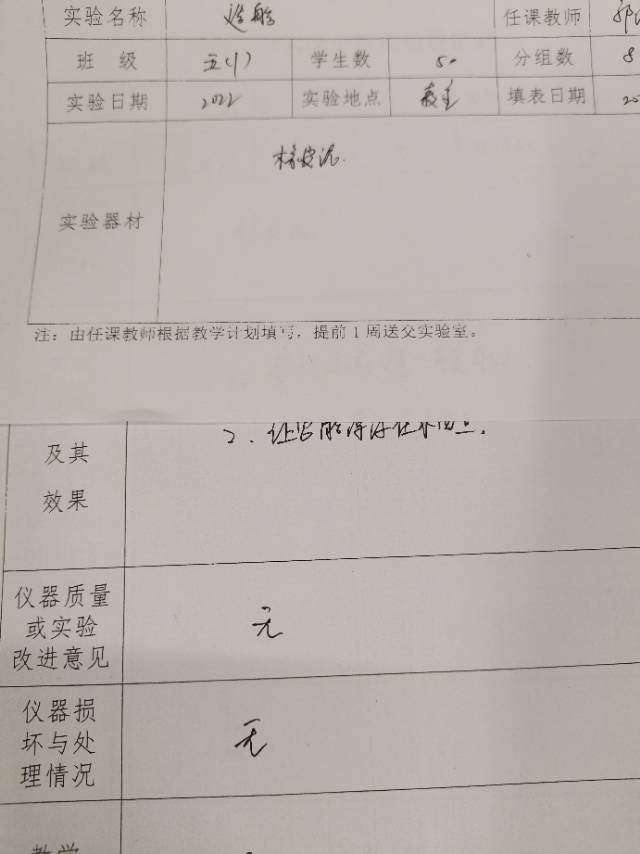 实验名称 造船 任课教师
班 级 五(1) 学生数 50 分组数 8
实验日期 2022 实验地点 教室 填表日期 20
橡皮泥.
实验器材
注：由任课教师根据教学计划填写，提前1周送交实验室。
2、让它能浮在水面上.
及其
效果
仪器质量
或实验 无
改进意见
仪器损
坏与处 无
理情况
教学